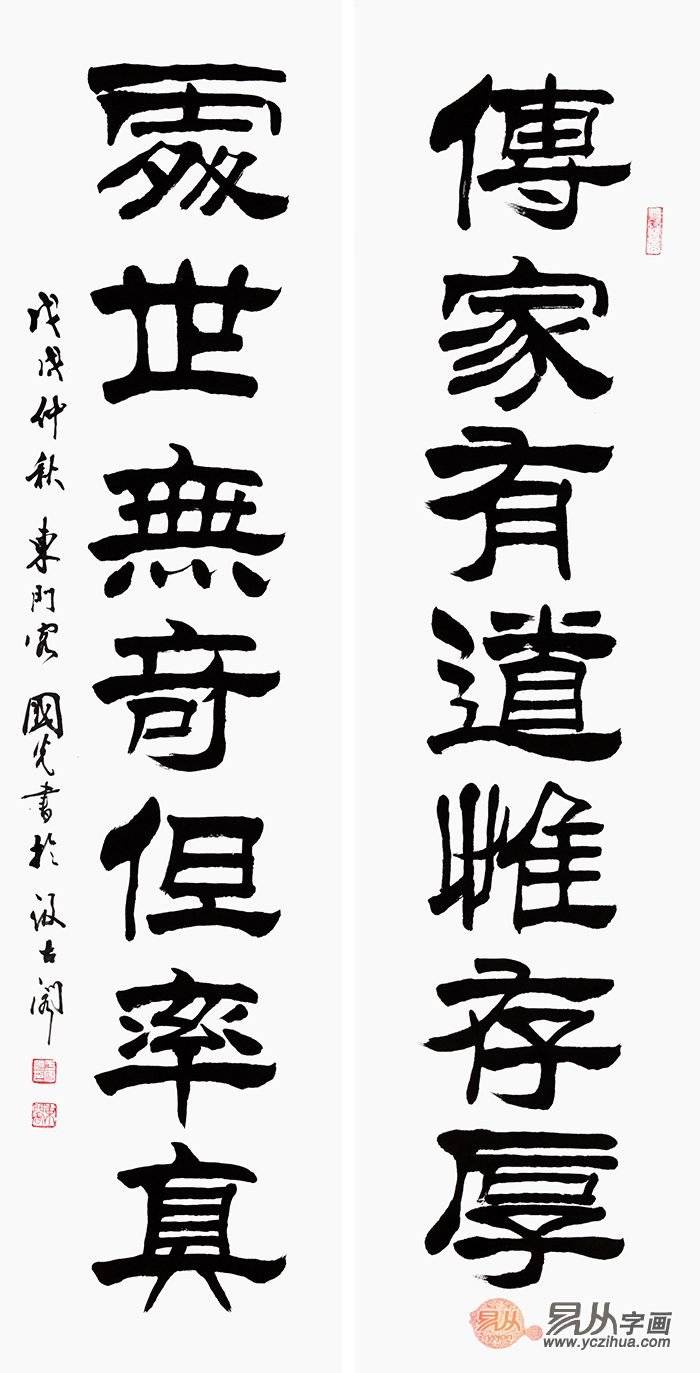 傳家有道惟存厚
處世無奇但率真
戊戌仲秋 東門客 國光書於汲古閣
易从字画
www.yczihua.com